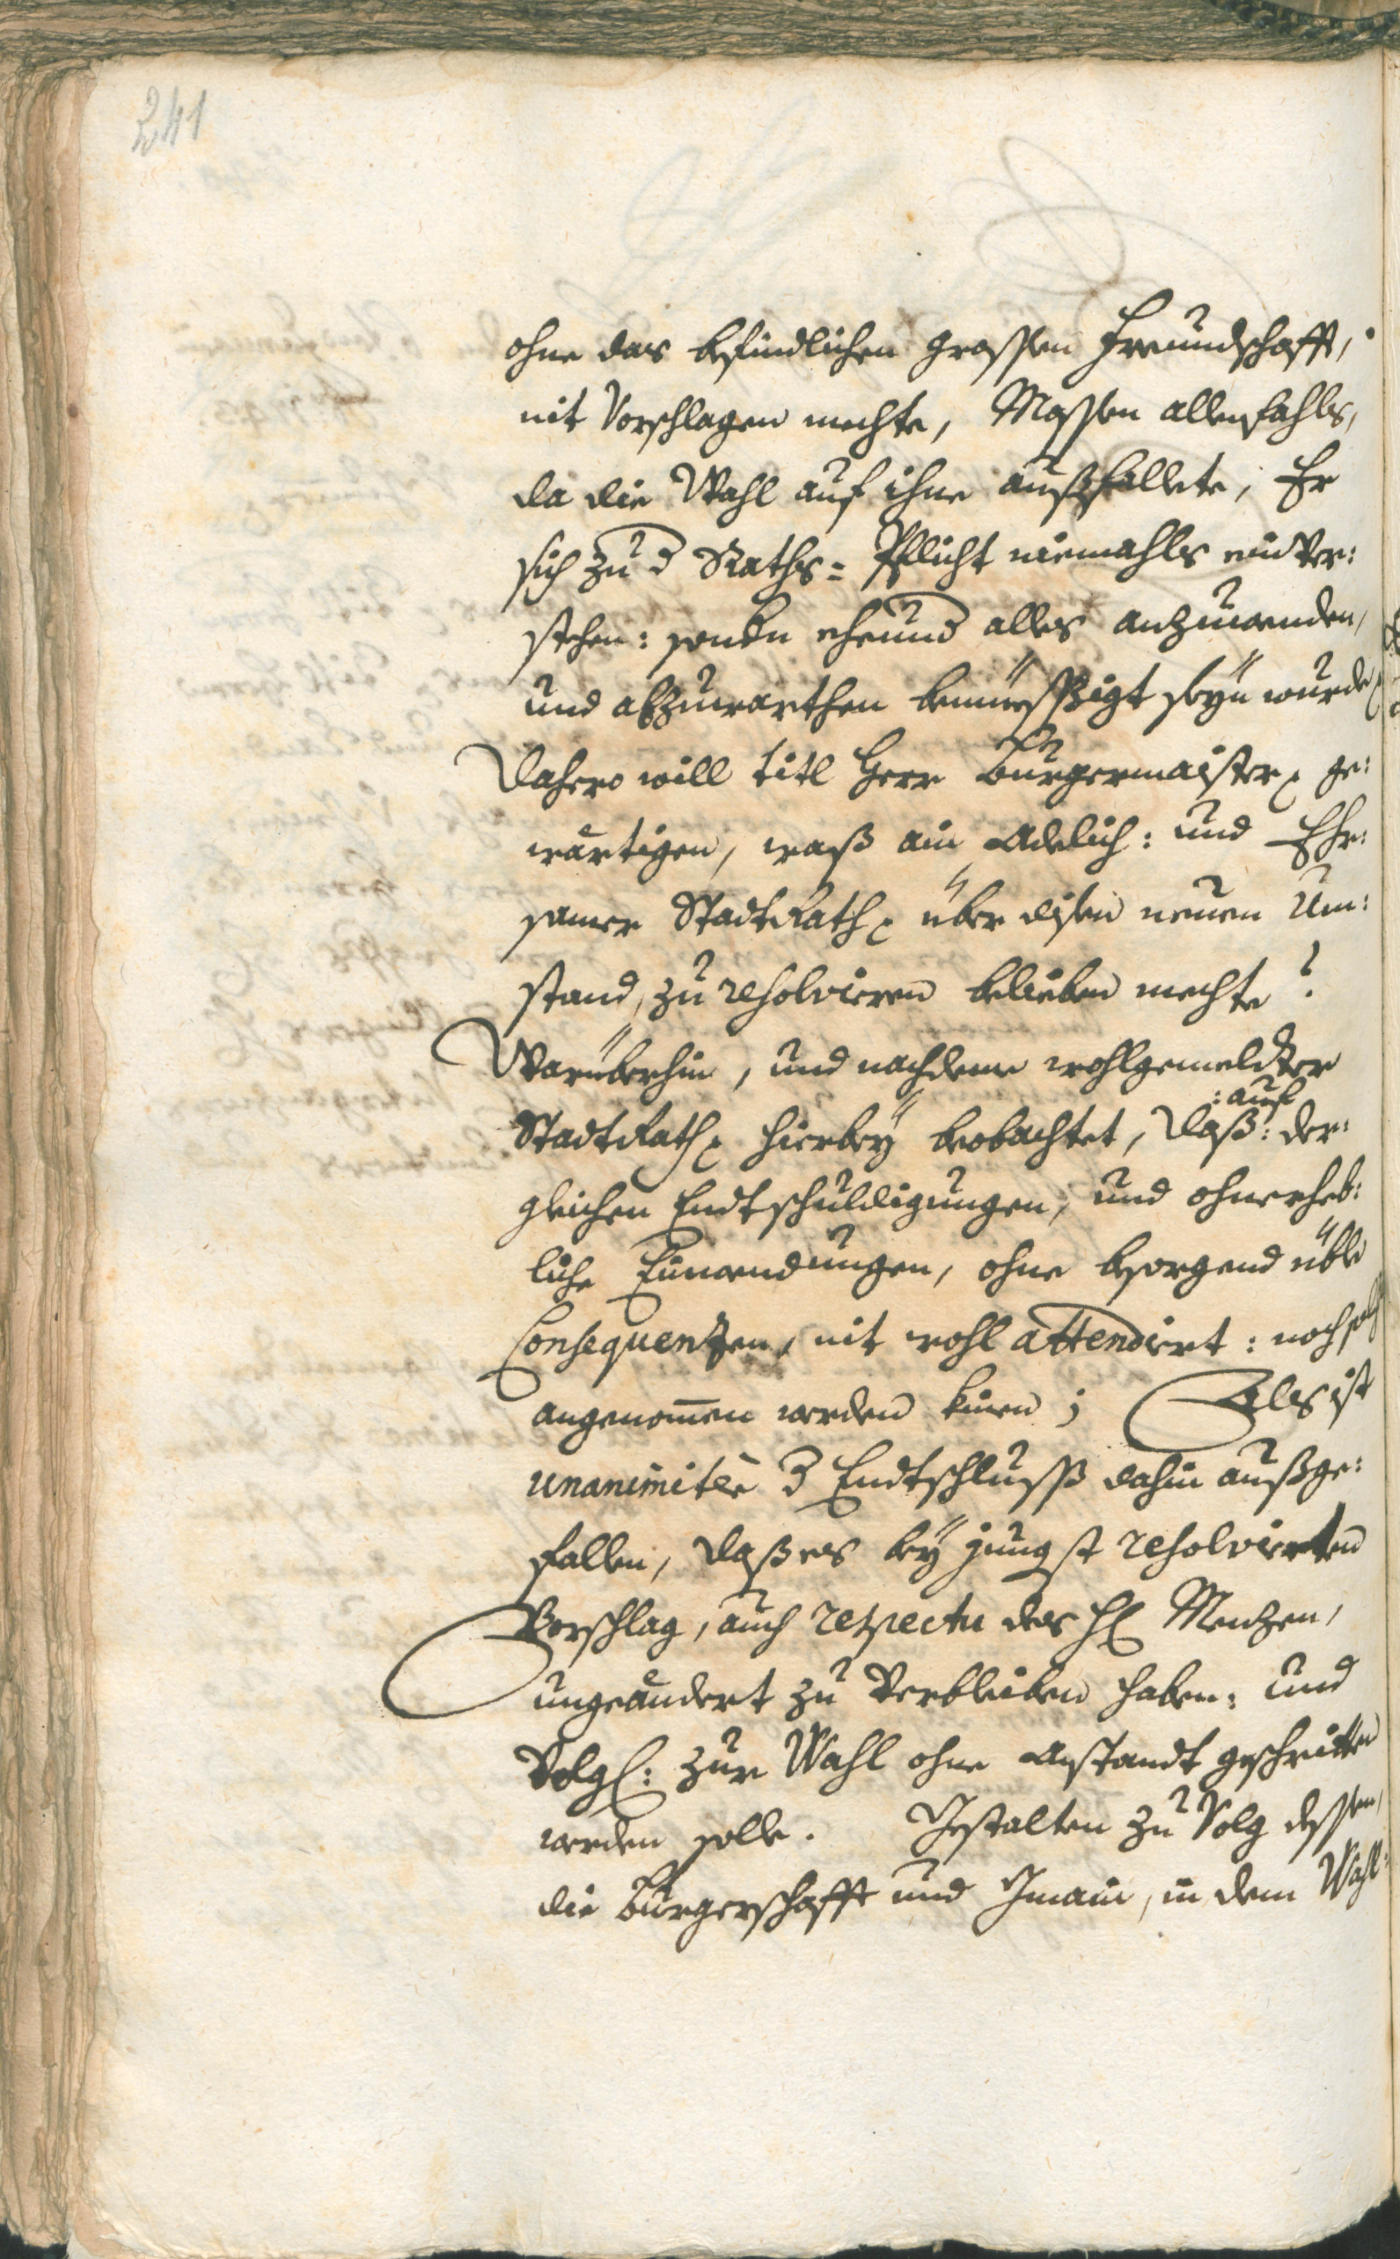 241
ohne das befindlichen grossen Freundschafft,
nit Vorschlagen mechte, Massen allenfahls,
da die Wahl auf ihne außfallete, Er
sich zu d Raths= Pflicht niemahls ein Ver:
stehen: sondn ehe und alles anzuwenden,
und abzuwarthen bemüessßigt seyn wurde
Dahero will titl Herr Burgermaister, ge:
wärtigen, waß ain Adelich: und Ehr:
samer StadtRath, über disen neuen Um:
stand, zu resolvieren belieben mechte?
Warüberhin, und nachdeme wohlgemeldter
:auf
StadtRath, hierbey beobachtet, Daß: der:
gleichen Endtschuldigungen, und ohnerheb:
liche Einwendungen, ohne besorgend üble
Consequenzen, nit wohl attendiert: noch
angenom̄en werden kinen; Als ist
unanimitèr d Endtschlusß dahin außge:
fallen, daß es bey jungst resolvierten
Vorschlag, auch respectu des H. Menzen,
ungeändert zu Verbleiben haben: und
Volgl: zur Wahl ohne Anstandt geschritten
werden solle. Gestalten zu Volg dessen,
die Burgerschafft und Gmain, in dem Wahl: